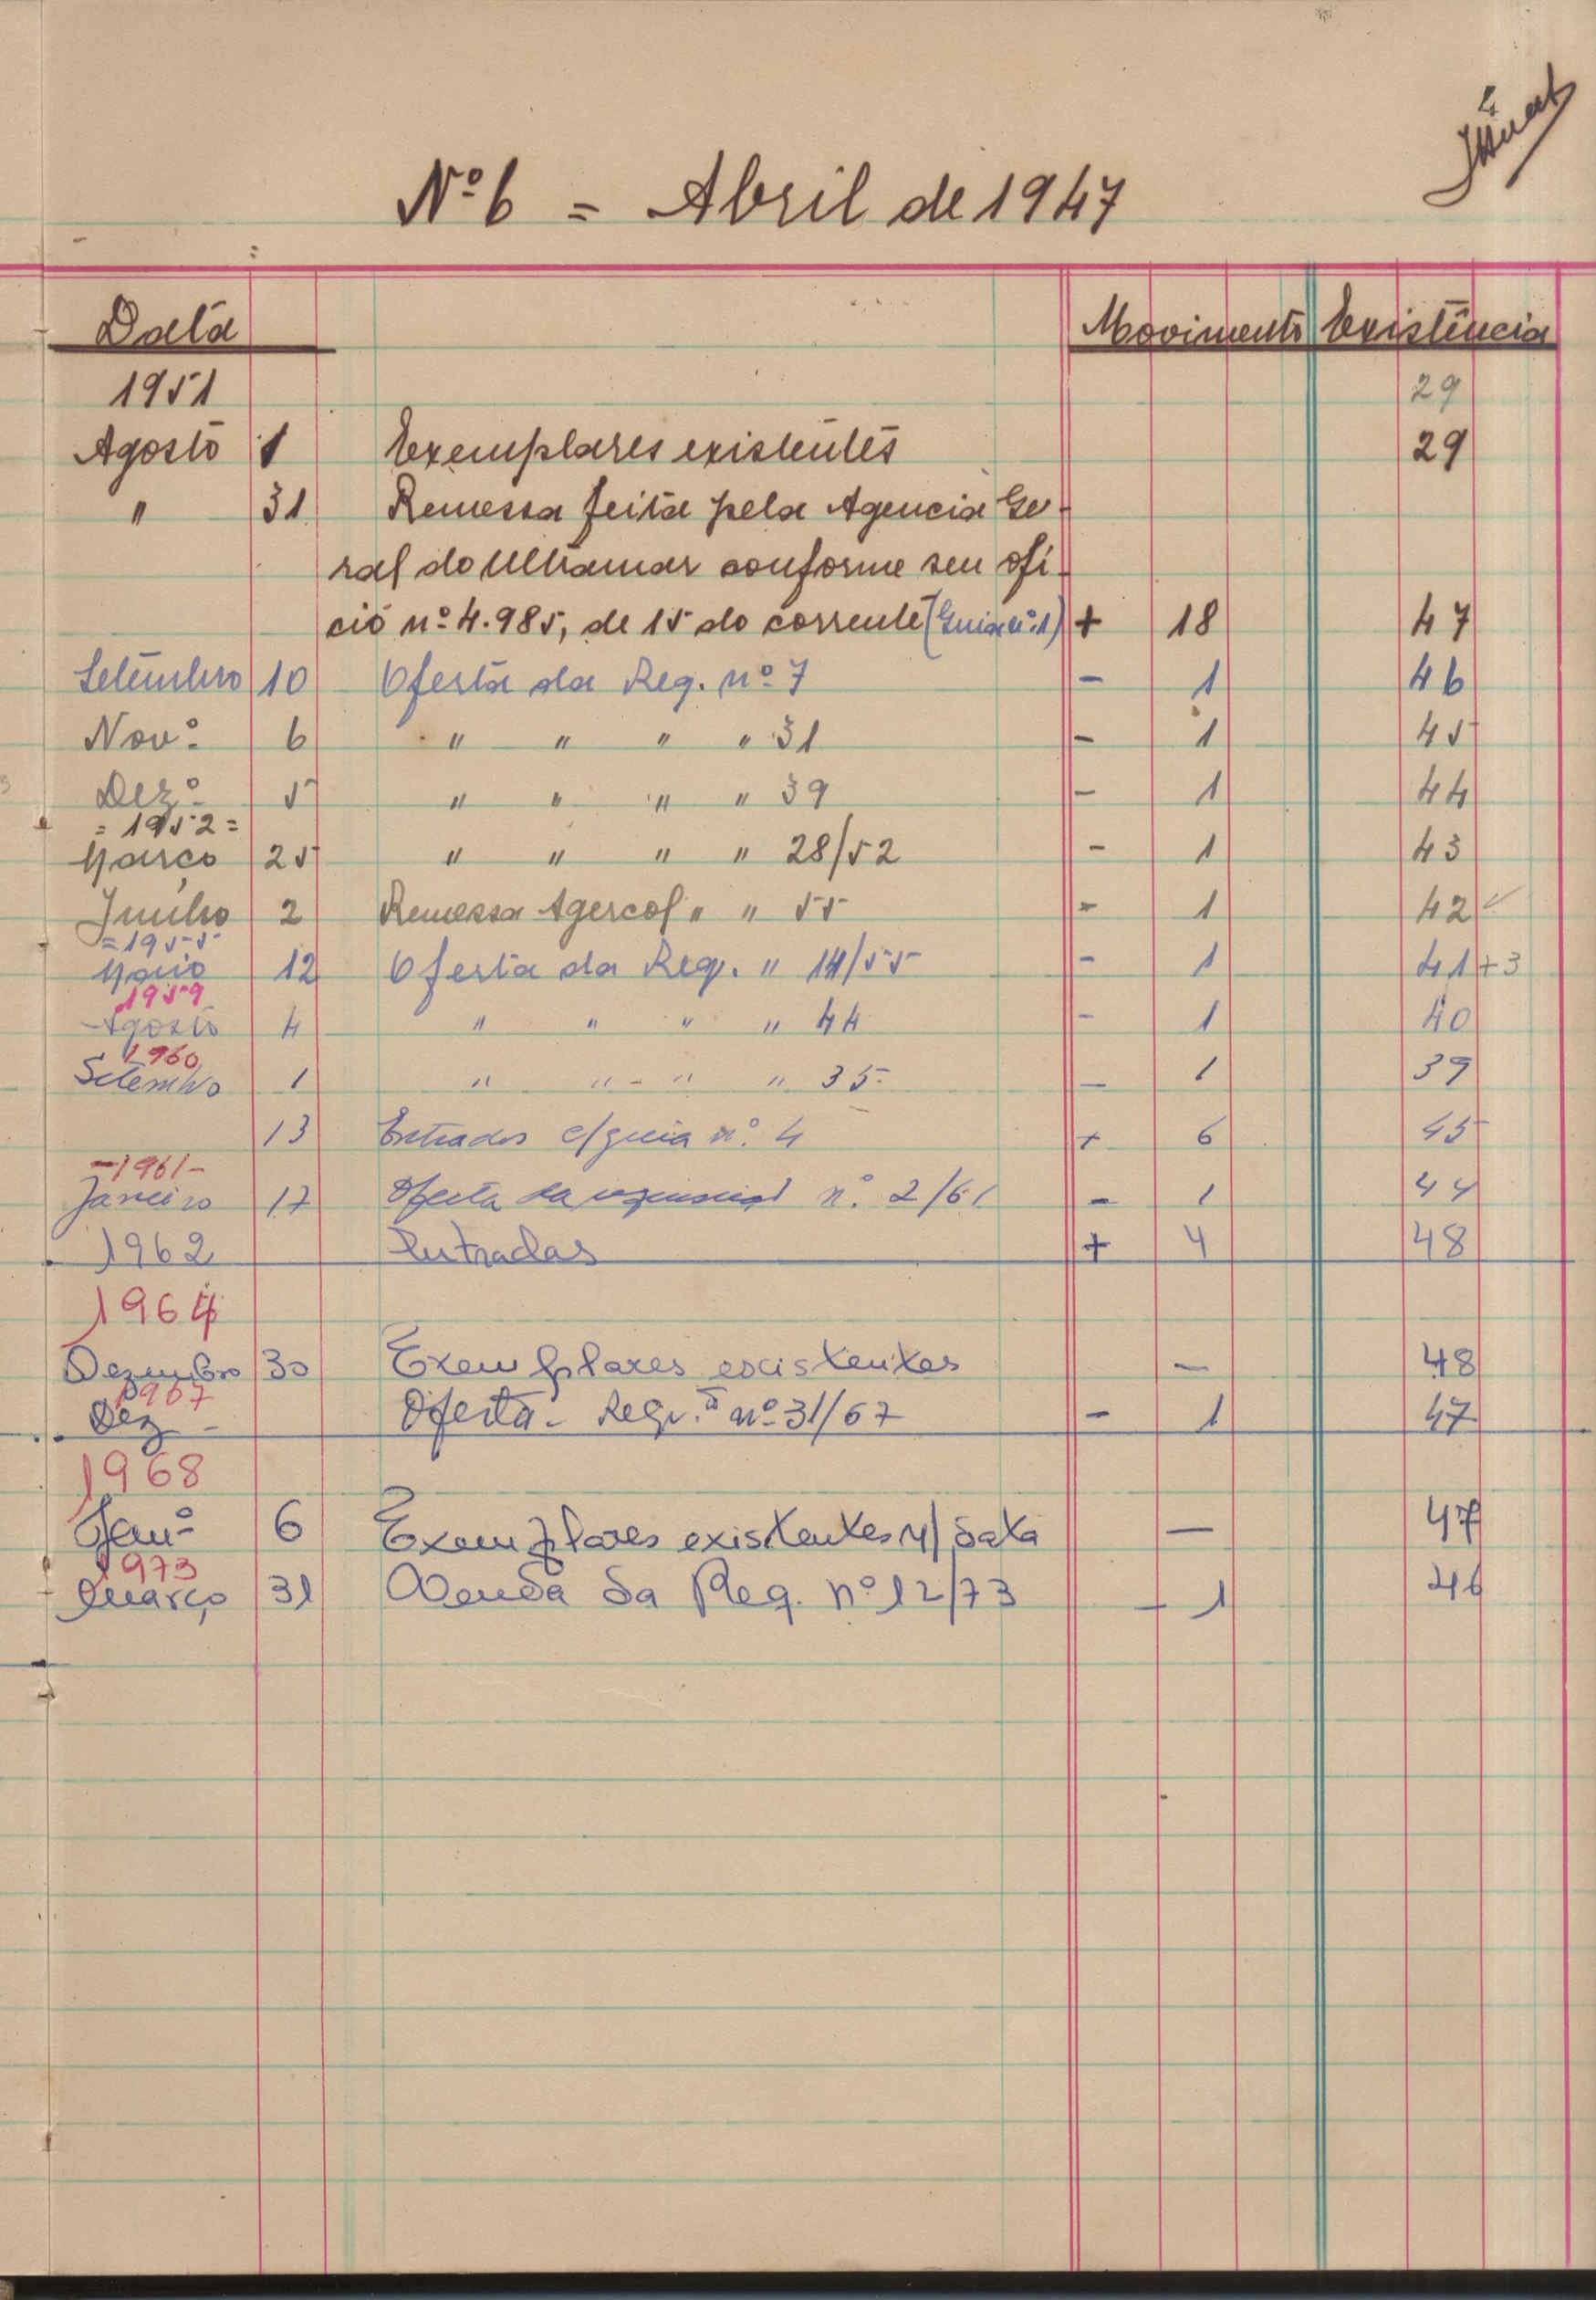 4
Nº 6 = Abril de 1947
Data Movimento Existência
1951 29
Agosto 1 Exemplares existentes 29
" 31 Remessa feita pela Agencia Ge-
ral do Ultramar conforme seu ofi-
cio nº 4.985, de 15 do corrente (Guia nº 1) + 18 47
Setembro 10 Oferta da Req. nº 7 - 1 46
Novº 6 " " " " 31 - 1 45
Dezº 5 " " " " 39 - 1 44
= 1952 =
Março 25 " " " " 28/52 - 1 43
Junho 2 Remessa Agercol " " 55 - 1 42
= 1955
Maio 12 Oferta da Req. " 14/55 - 1 41 + 3
1959
Agosto 4 " " " " 44 - 1 40
1960
Setembro 1 " " - " " 35 - 1 39
13 Entradas c/guia nº 4 + 6 45
- 1961 -
Janeiro 17 Oferta da requisição nº 2/61 - 1 44
1962 Entradas + 4 48
1964
Dezembro 30 Exemplares existentes — 48
1967
Dez - Oferta - Reqª nº 31/67 - 1 47
1968
Janº 6 Exemplares existentes n/ data — 47
1973
Março 31 Venda da Req. nº 12/73 - 1 46